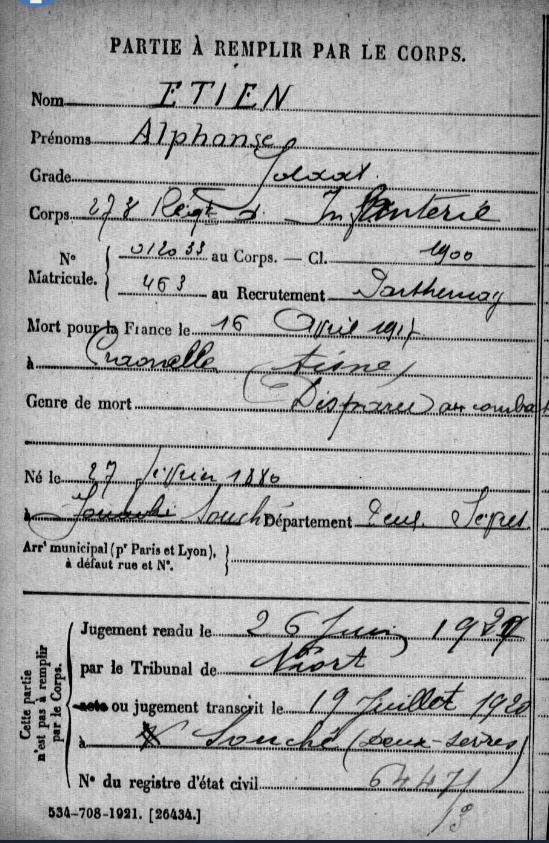 PARTIE À REMPLIR PAR LE CORPS.
Nom ETIEN
Prénoms Alphonse
Grade Soldat
Corps 273 Régt d' Infanterie
N° Matricule. { 012033 au Corps. — Cl. 1900
463 au Recrutement Parthenay
Mort pour la France le 16 Avril 1917
à Craonelle (Aisne)
Genre de mort Disparu au combat
Né le 27 1880
à Souché Département Deux Sèvres
Arrt municipal (pr Paris et Lyon), }
à défaut rue et N°.
Cette partie n'est pas à remplir par le Corps.
Jugement rendu le 26 Juin
par le Tribunal de Niort
acte ou jugement transcrit le 19 Juillet 1920
à Souché (Deux-Sevres)
N° du registre d'état civil
534-708-1921. [26434.]